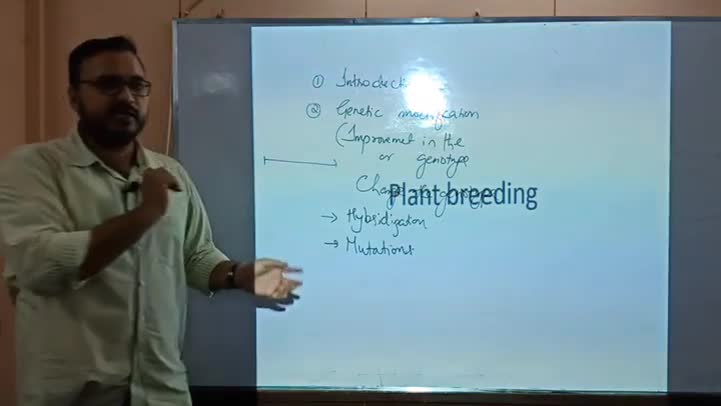 ① Introduction
② Genetic modification
(Improvemet in the
or genotype
Change the
Plant breeding
→ Hybridization
→ Mutations